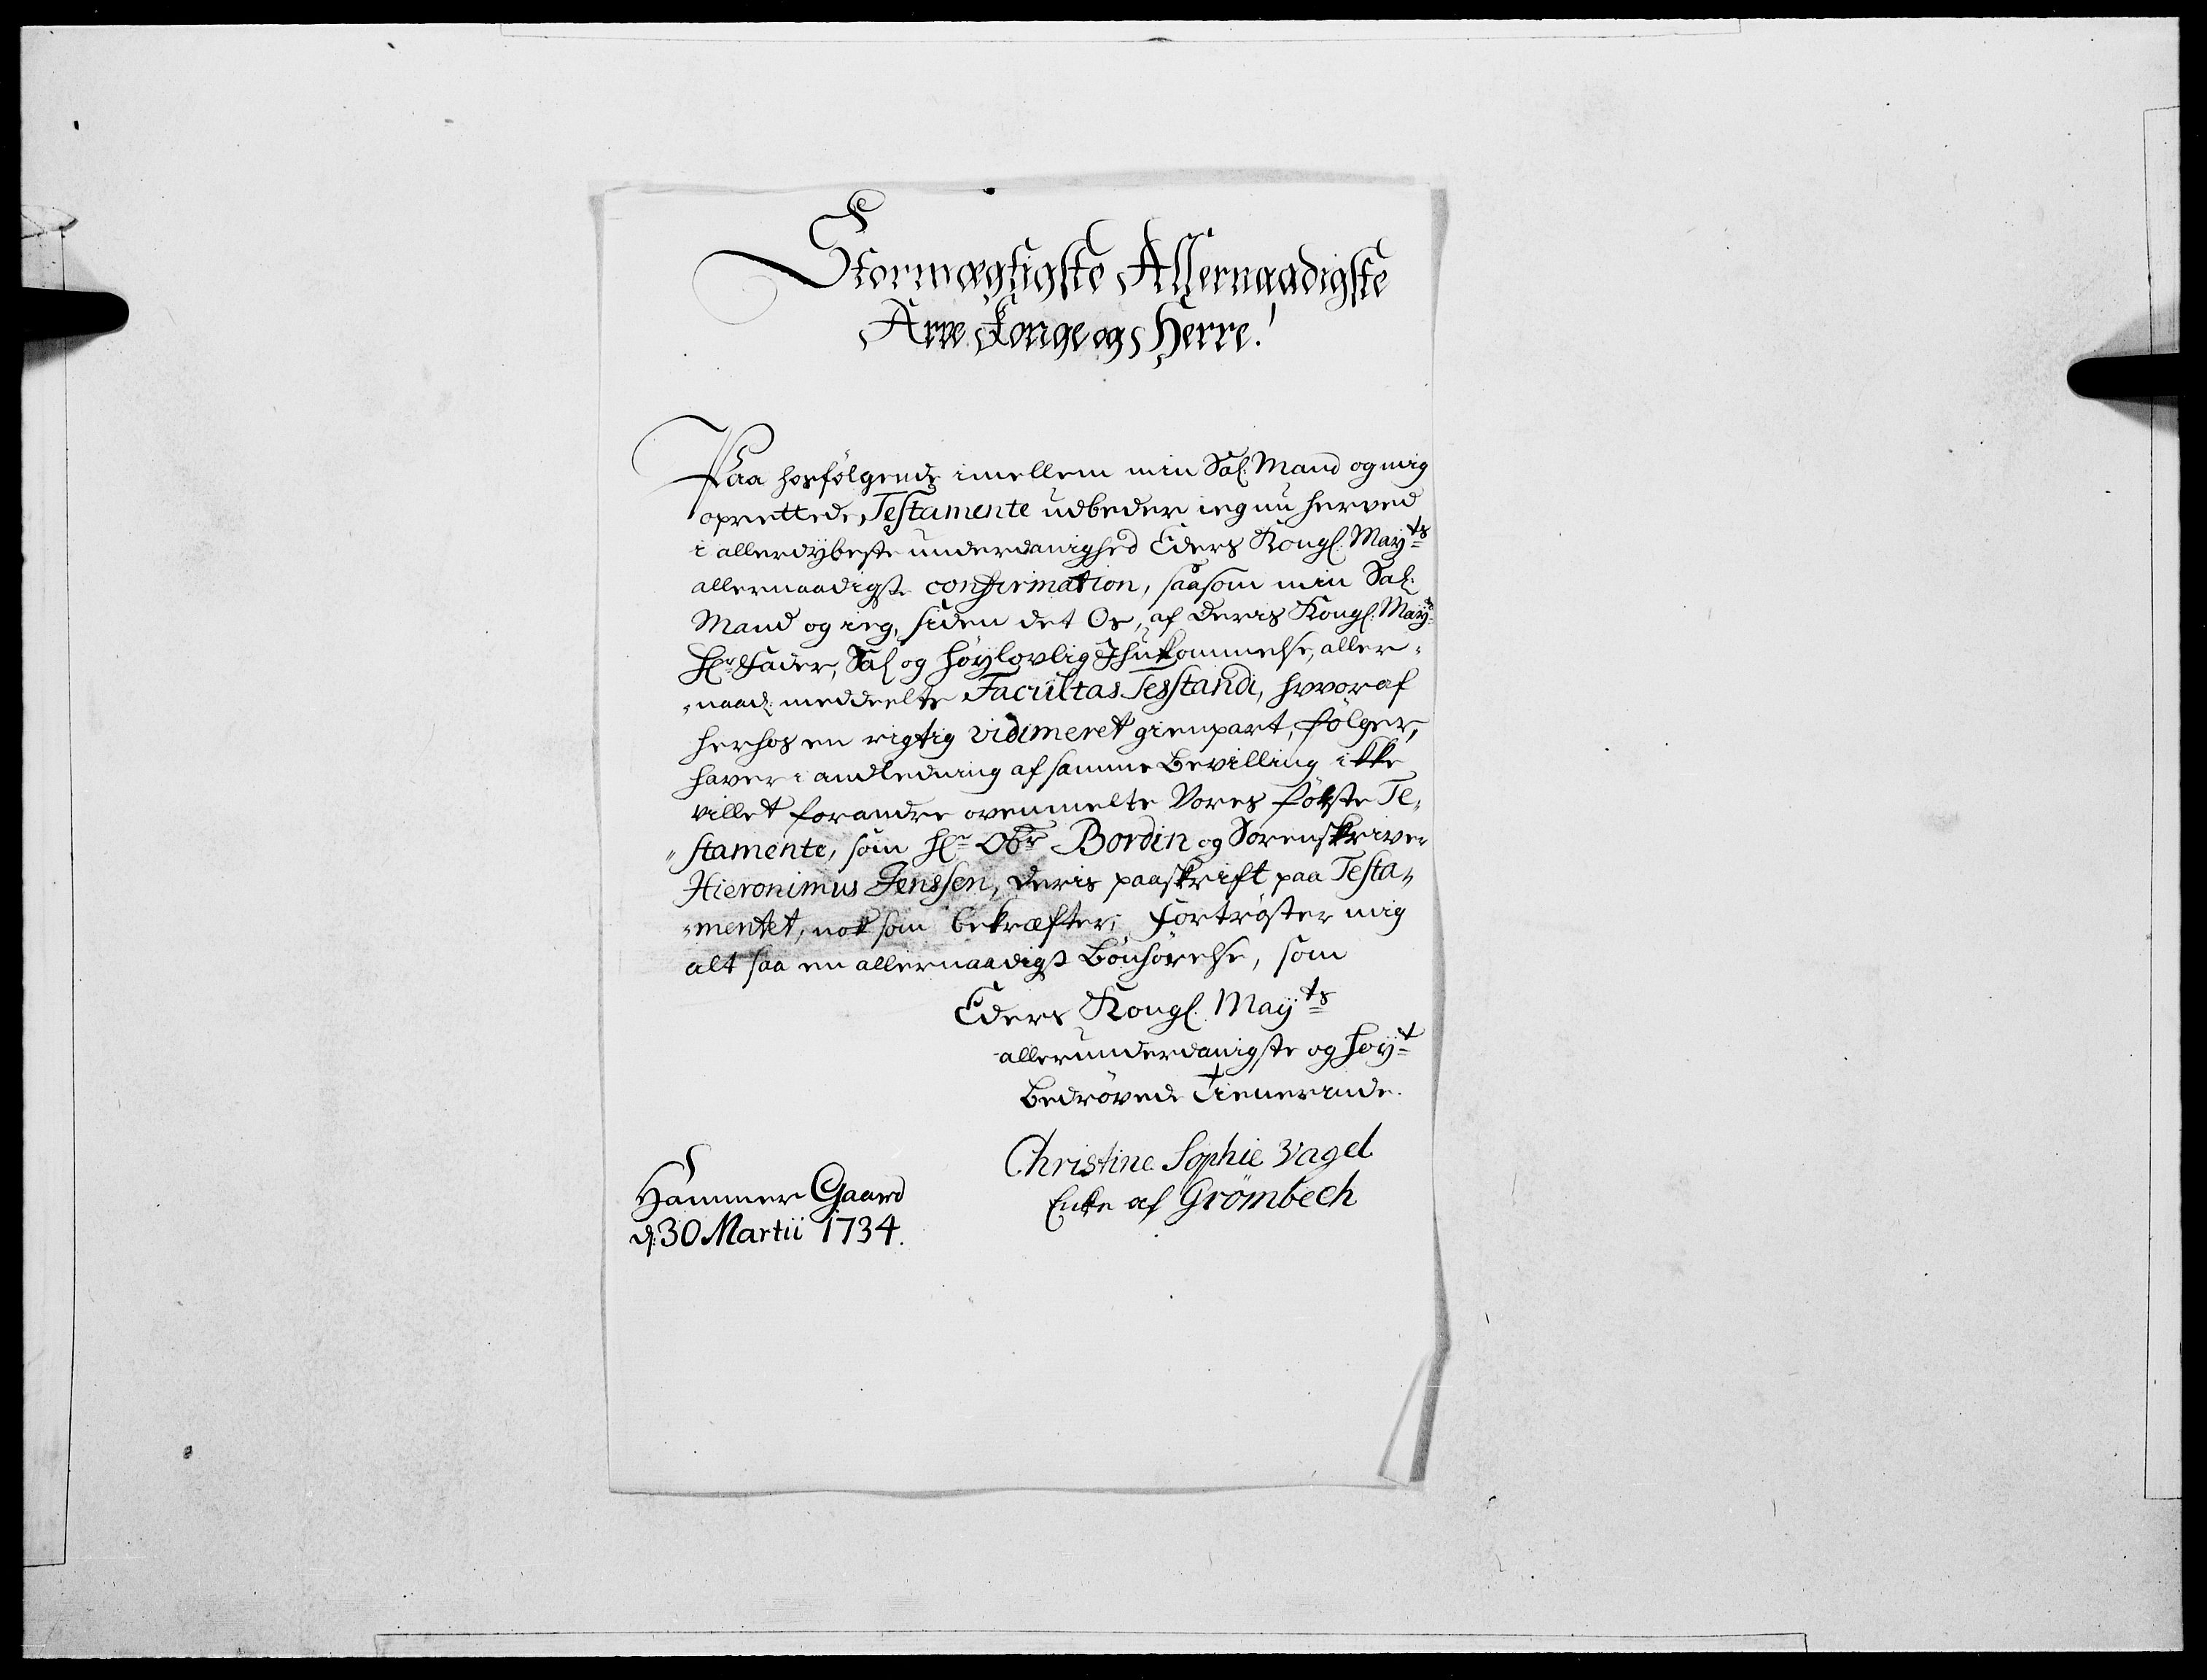 Stormægtigste Allernaadigste
Arve Konge og Herre!
Paa hosfölgende imellem min Sal: Mand og mig
oprettede Testamente udbeder ieg nu herved
i allerdybeste underdanighed Eders Kongl: Mayts
allernaadigste confirmation, saasom min Sal:
Mand og ieg, siden det Os, af Deris Kongl: Mayts
Hr Fader, Sal og höylovlig Ihukommelse, aller-
-naad: meddeelte Facultas Testandi, hvoraf
herhos en rigtig vidimeret gienpart, fölger,
haver i andledning af samme Bevilling ikke
villet forandre ovenmelte Vores förste Te-
-stamente, som Hr Obr Bordin og Sorenskriver
Hieronimus Jenssen, Deris paaskrift paa Testa-
-mentet, nok som bekræfter; Fortröster mig
alt saa en allernaadigst Bönhörelse, som
Eders Kongl. Mayts
allerunderdanigste og höyt
Bedrövede Tienerinde.
Christine Sophie Vagel
Enke af Grömbech
Hammer Gaard
d: 30 Martii 1734.